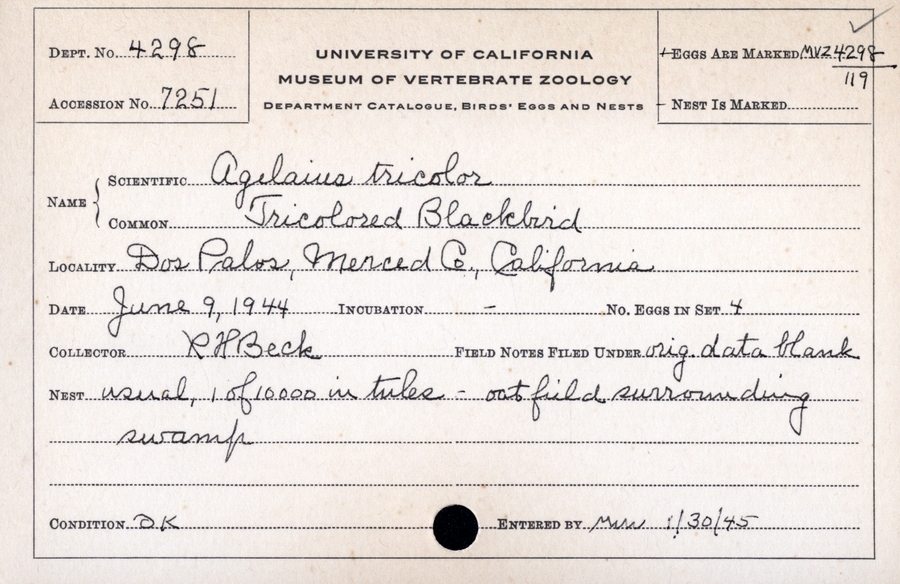 DEPT. No. 4298
ACCESSION No. 7251
UNIVERSITY OF CALIFORNIA
MUSEUM OF VERTEBRATE ZOOLOGY
DEPARTMENT CATALOGUE, BIRDS' EGGS AND NESTS
+ EGGS ARE MARKED MVZ 4298
119
- NEST IS MARKED
NAME
SCIENTIFIC Agelaius tricolor
COMMON Tricolored Blackbird
LOCALITY Dos Palos, Merced Co., California
DATE June 9, 1944 INCUBATION - No. EGGS IN SET 4
COLLECTOR R H Beck FIELD NOTES FILED UNDER orig. data blank
NEST usual, 1 of 10000 in tules - oat field surrounding
swamp
CONDITION OK ENTERED BY 1/30/45